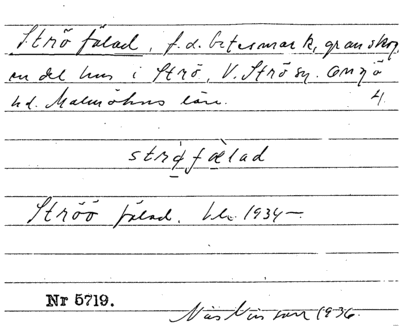 Strö fälad, f.d. betesmark, granskog,
en del hus i Strö, V. Strö sn. Onsjö
hd. Malmöhus län. 4.
strø̀fælad
Ströö fälad. bl. 1934–
Nr 5719.
1936.